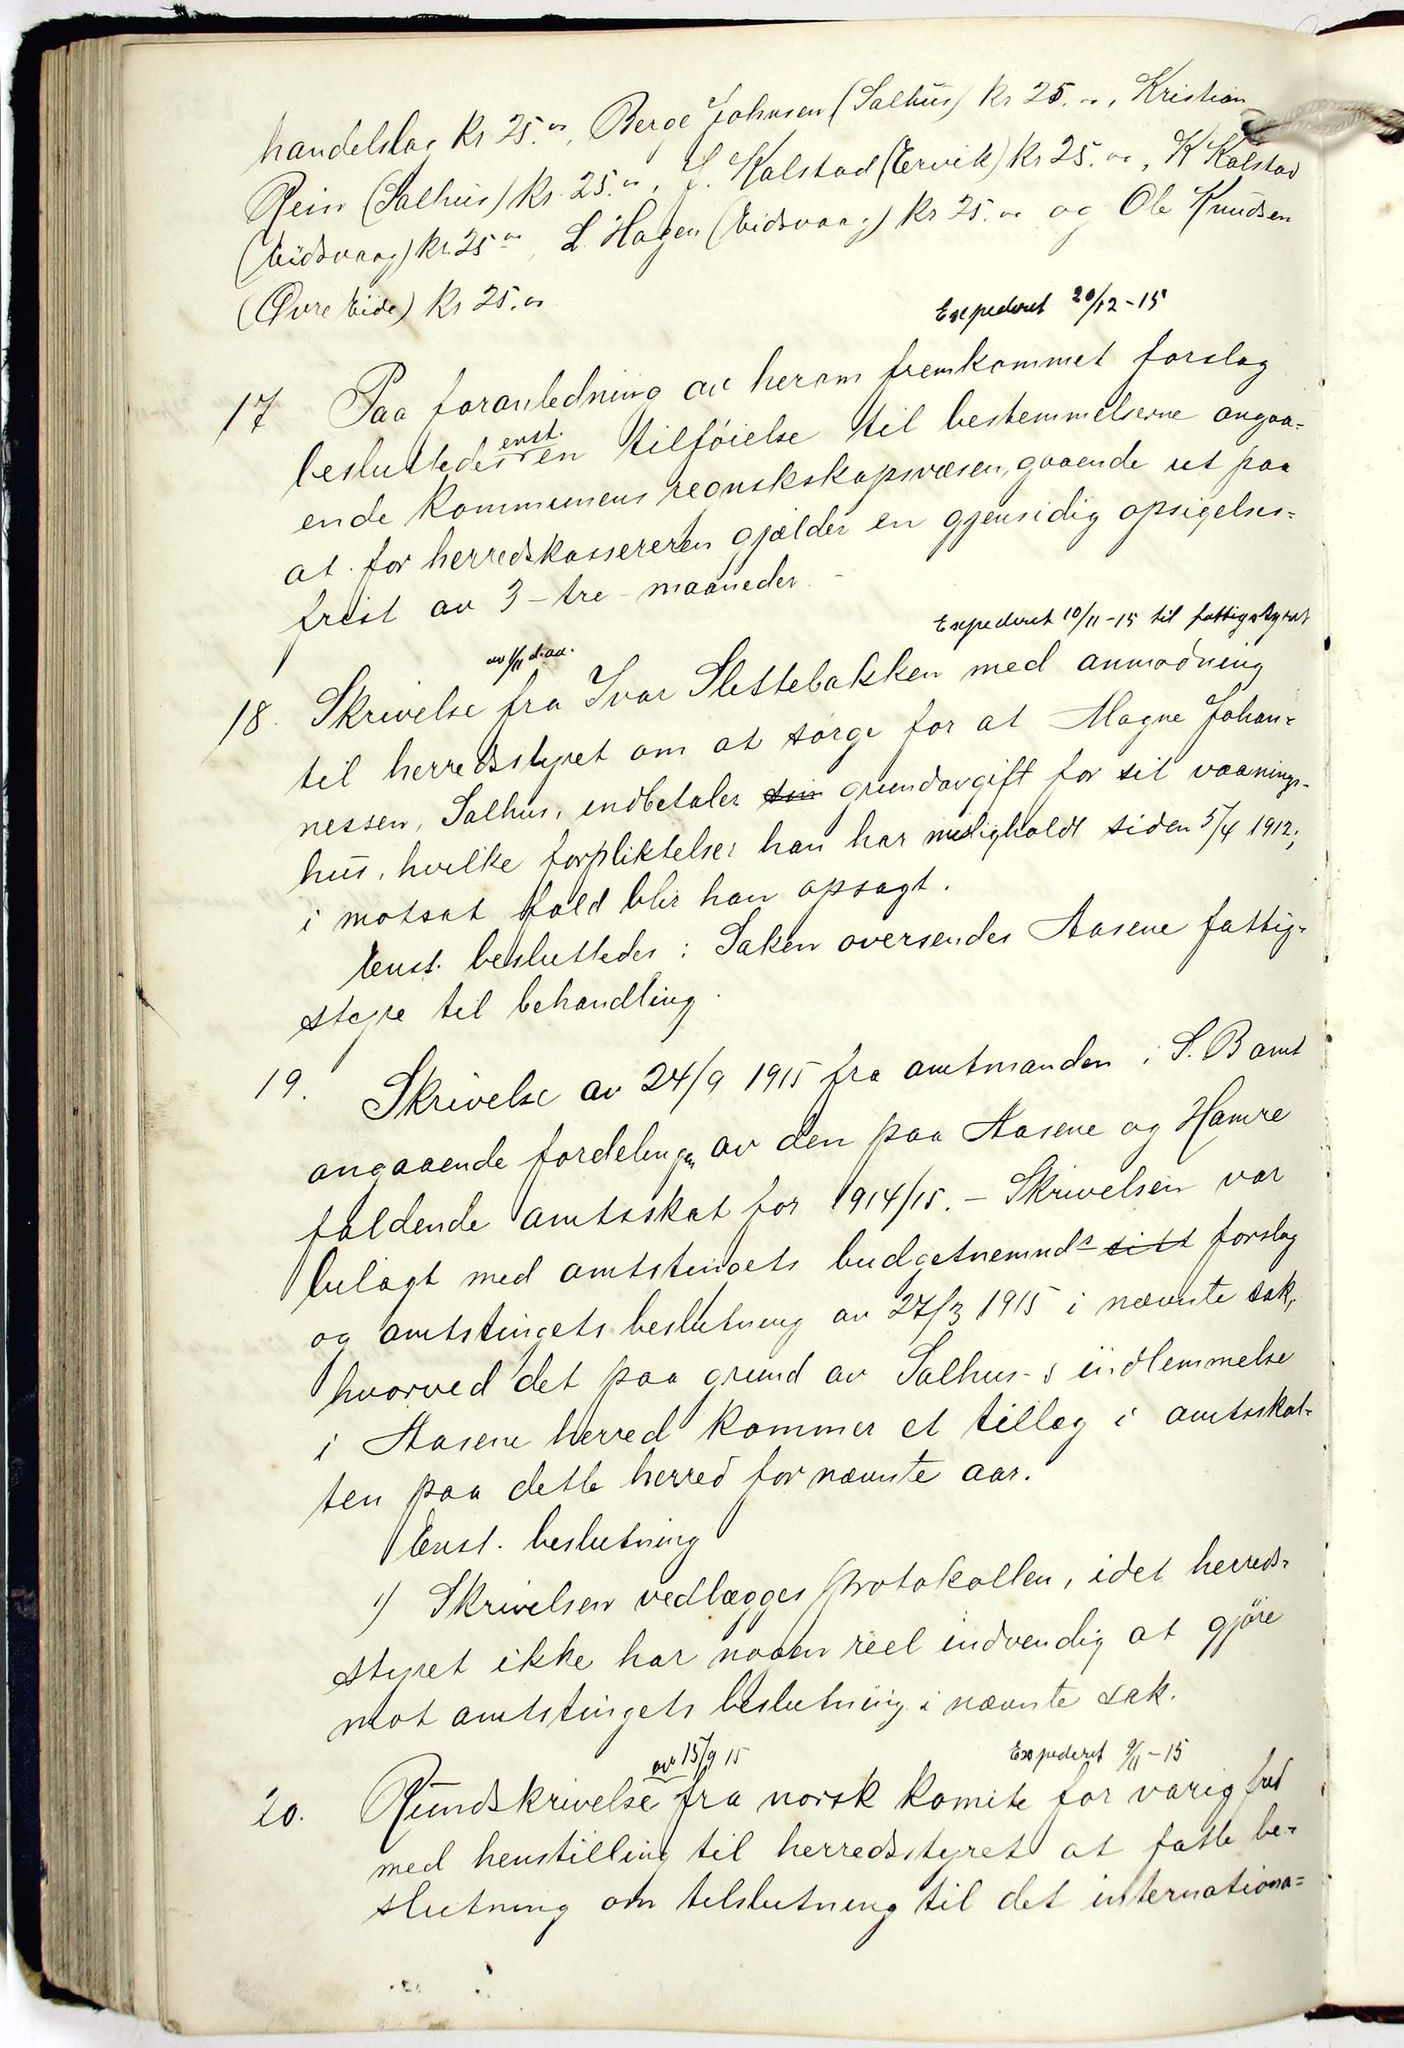 handelslag kr 25.00, Berge Johnsen (Salhus) kr 25.00, Kristian
Rein (Salhus) kr. 25.00, J. Kalstad (Ervik) kr 25.00, K Kalstad
(Eidsvaag) kr 25 00, L. Hagen (Eidsvaag) kr 25.00 og Ole Knudsen
(Øvre Eide) kr 25.00
Expederet 20/12-15
17 Paa foranledning av herom fremkommet forslag
besluttedes enst. en tilføielse til bestemmelserne angaa=
ende kommunens regnskskapsvæsen, gaaende ut paa
at for herredskassereren gjælder en gjensidig opsigelses=
frist av 3 - tre - maaneder. -
Expederet 10/11-15 til fattigstyret
av 1/11 d.aa.
18. Skrivelse fra Ivar Slettebakken med anmodning
til herredsstyret om at sørge for at Magne Johan=
nessen, Salhus, indbetaler sin grundavgift for sit vaanings-
hus, hvilke forpliktelser han har misligholdt siden 5/4 1912;
i motsat fald blir han opsagt.
Enst. besluttedes: Saken oversendes Aasene fattig=
styre til behandling.
19. Skrivelse av 24/9 1915 fra amtmanden i S. B amt
angaaende fordelingen av den paa Aasene og Hamre
faldende amtsskat for 1914/15. - Skrivelsen var
bilagt med amtstingets budgetnemnds sitt forslag
og amtstingets beslutning av 27/3 1915 i nævnte sak,
hvorved det paa grund av Salhus-s indlemmelse
i Aasene herred kommer et tillæg i amtsskat=
ten paa dette herred for nævnte aar.
Enst. beslutning
1) Skrivelsen vedlægges protokollen, idet herreds=
styret ikke har noen reel indvendig at gjøre
mot amtstingets beslutning i nævnte sak.
av 15/9 15 Expederet 9/11-15
20. Rundskrivelse fra norsk komite for varig fred
med henstilling til herredsstyret at fatte be=
slutning om tilslutning til det internationa=